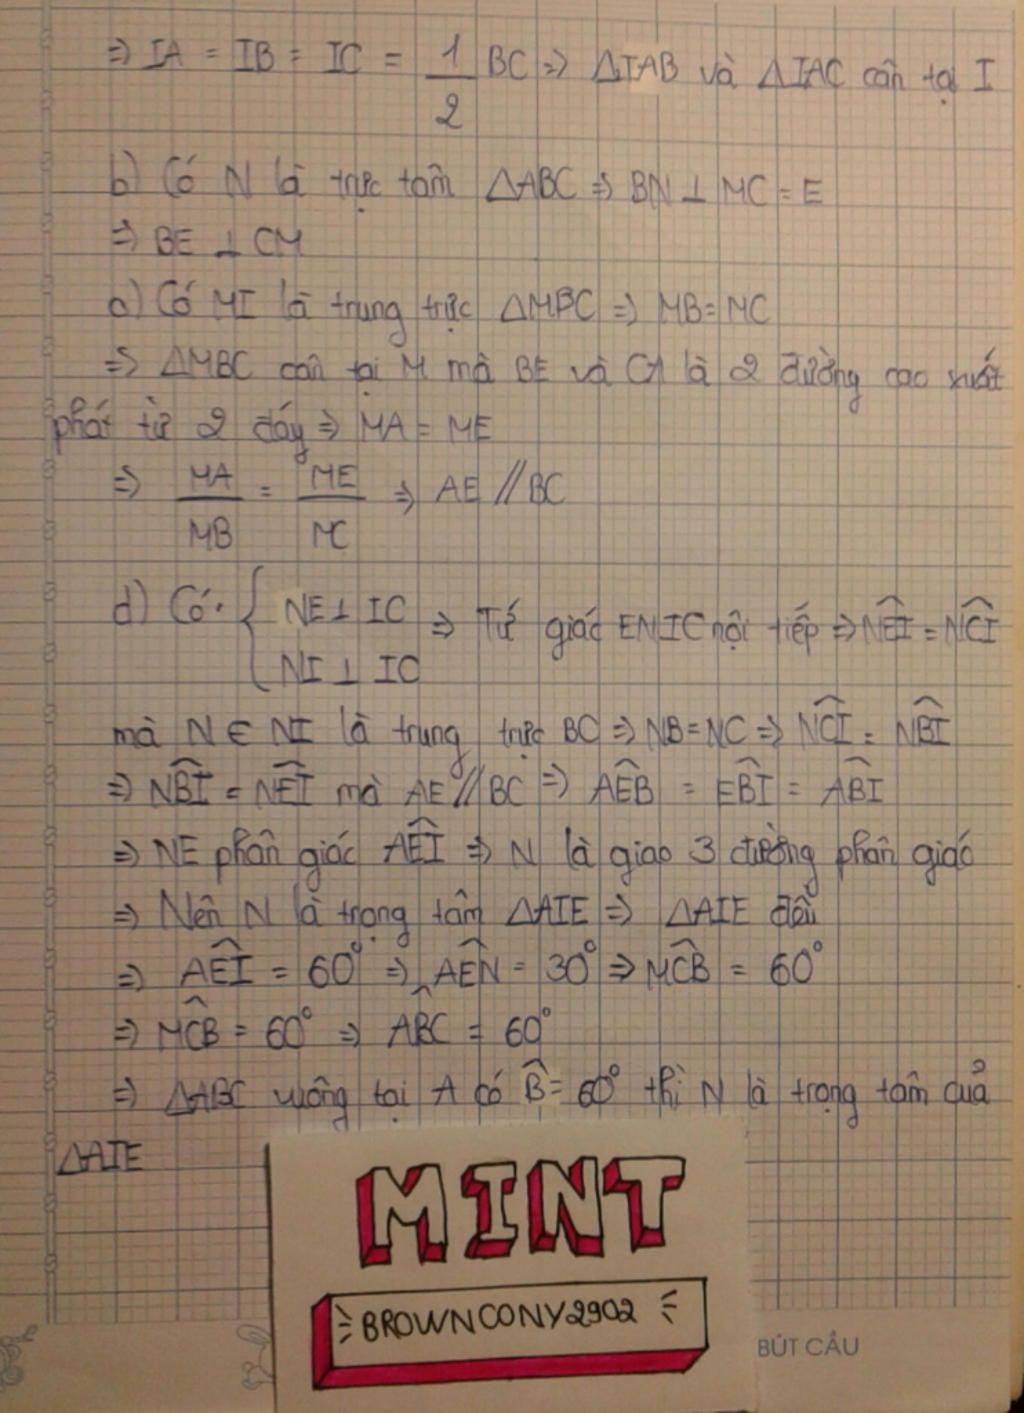 => IA = IB = IC = 1/2 BC => ΔIAB và ΔIAC cân tại I
b) Có N là trực tâm ΔABC => BN ⊥ MC = E
=> BE ⊥ CM
c) Có MI là trung trực ΔMBC => MB = MC
=> ΔMBC cân tại M mà BE và CA là 2 đường cao xuất
phát từ 2 đáy => MA = ME
=> MA/MB = ME/MC => AE // BC
d) Có: { NE ⊥ IC
NI ⊥ IC => Tứ giác ENIC nội tiếp => NEI^ = NCI^
mà N ∈ NI là trung trực BC => NB = NC => NCI^ = NBI^
=> NBI^ = NEI^ mà AE // BC => AEB^ = EBI^ = ABI^
=> NE phân giác AEI^ => N là giao 3 đường phân giác
=> Nên N là trọng tâm ΔAIE => ΔAIE đều
=> AEI^ = 60° => AEN^ = 30° => MCB^ = 60°
=> MCB^ = 60° => ABC^ = 60°
=> ΔABC vuông tại A có B^ = 60° thì N là trọng tâm của
ΔAIE
MINT
BROWNCONY2902
BÚT CÂU